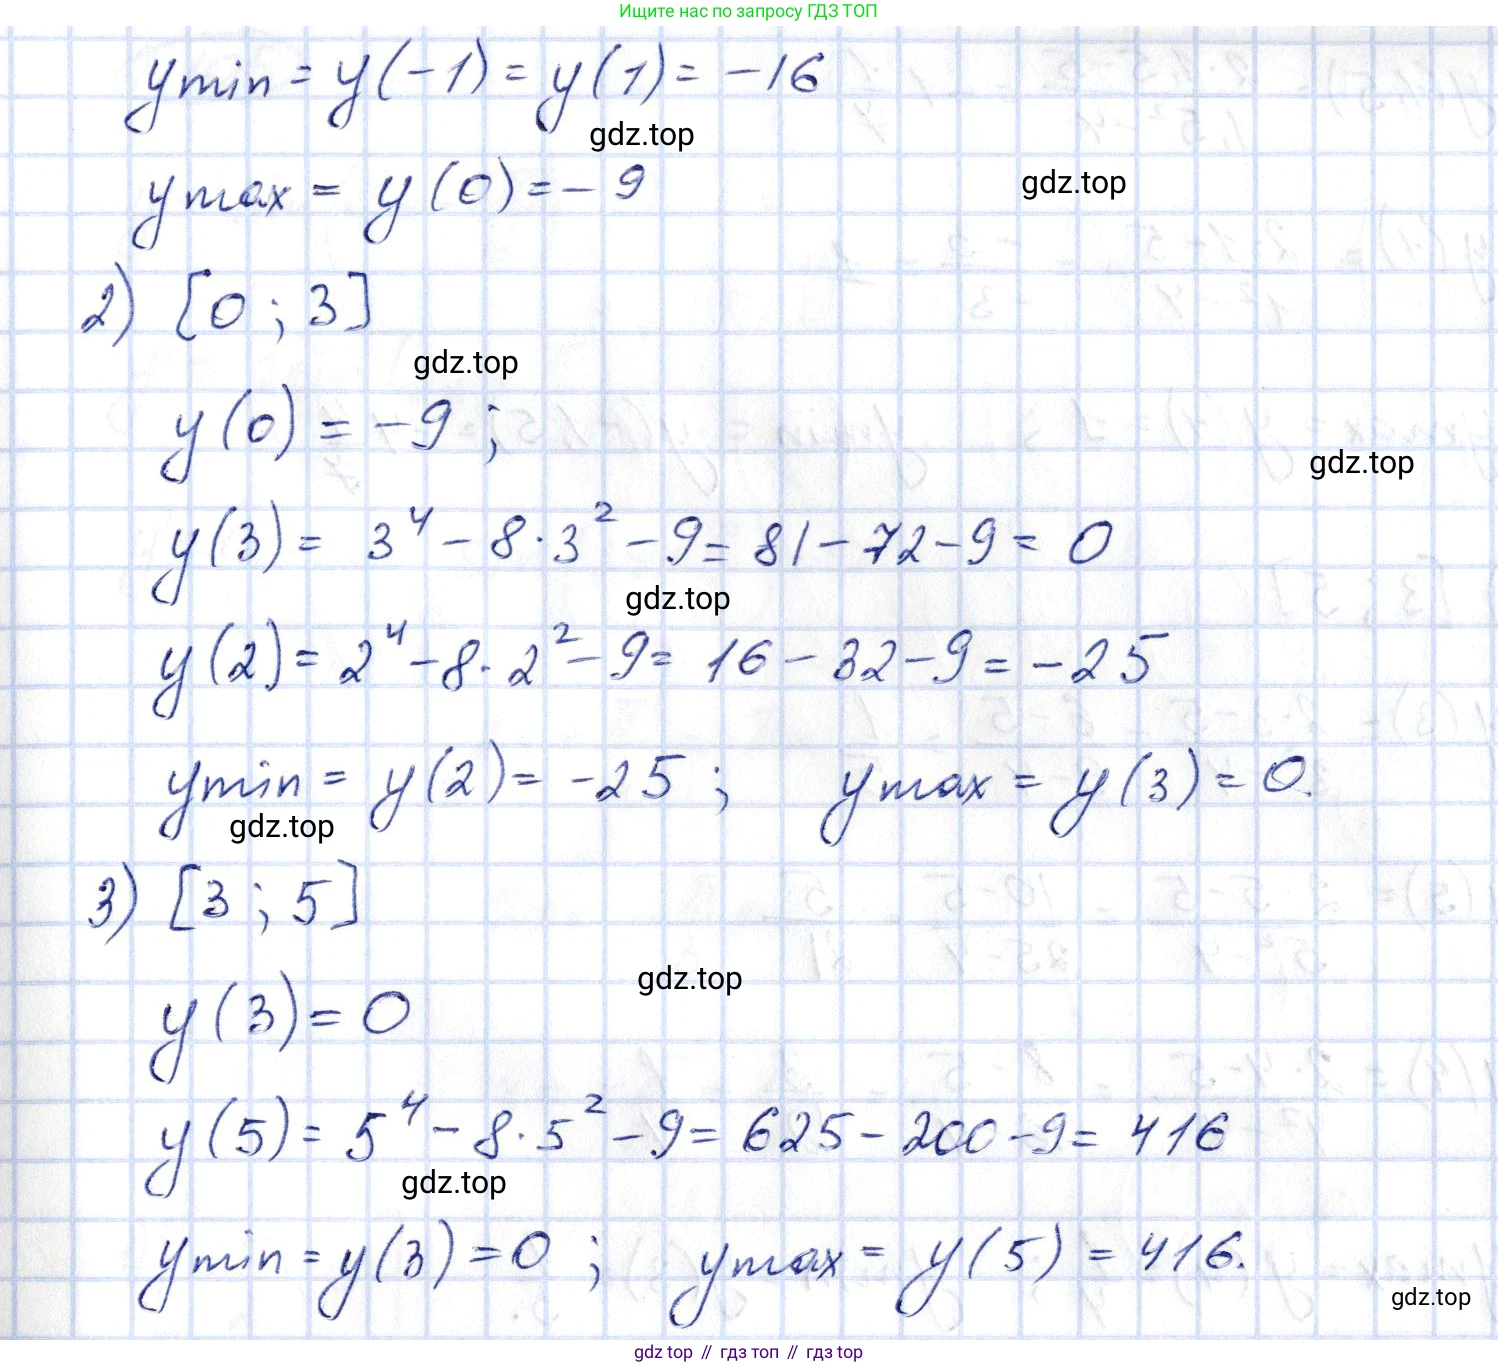 Ищите нас по запросу ГДЗ ТОП
ymin = y(-1) = y(1) = -16
gdz.top
ymax = y(0) = -9
gdz.top
2) [0 ; 3]
gdz.top
y(0) = -9 ;
gdz.top
y(3) = 3⁴ - 8·3² - 9 = 81 - 72 - 9 = 0
gdz.top
y(2) = 2⁴ - 8·2² - 9 = 16 - 32 - 9 = -25
ymin = y(2) = -25 ; ymax = y(3) = 0.
gdz.top
3) [3 ; 5]
gdz.top
y(3) = 0
y(5) = 5⁴ - 8·5² - 9 = 625 - 200 - 9 = 416
gdz.top
ymin = y(3) = 0 ; ymax = y(5) = 416.
gdz.top
gdz top // гдз топ // гдз top